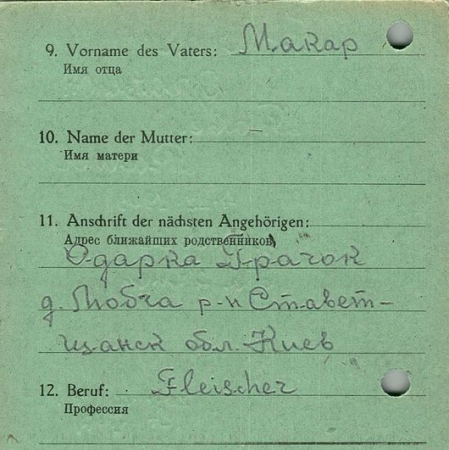 9. Vorname des Vaters: Макар
Имя отца
10. Name der Mutter:
Имя матери
11. Anschrift der nächsten Angehörigen:
Адрес ближайших родственников
Одарка Грачок
д. Любча р-н Ставет-
щанск обл. Киев
12. Beruf: Fleischer
Профессия